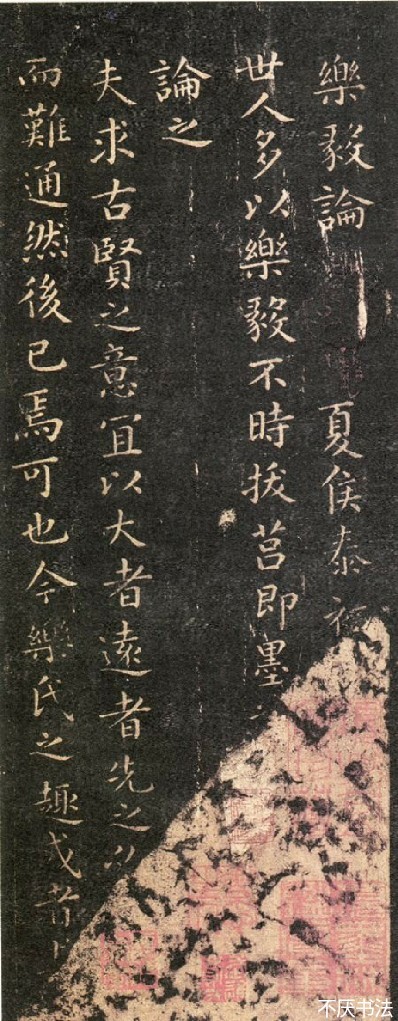 樂毅論
夏侯泰
世人多以樂毅不時拔莒即墨
論之
夫求古賢之意宜以大者遠者先之
而難通然後已焉可也今樂氏之趣或者
不厌书法